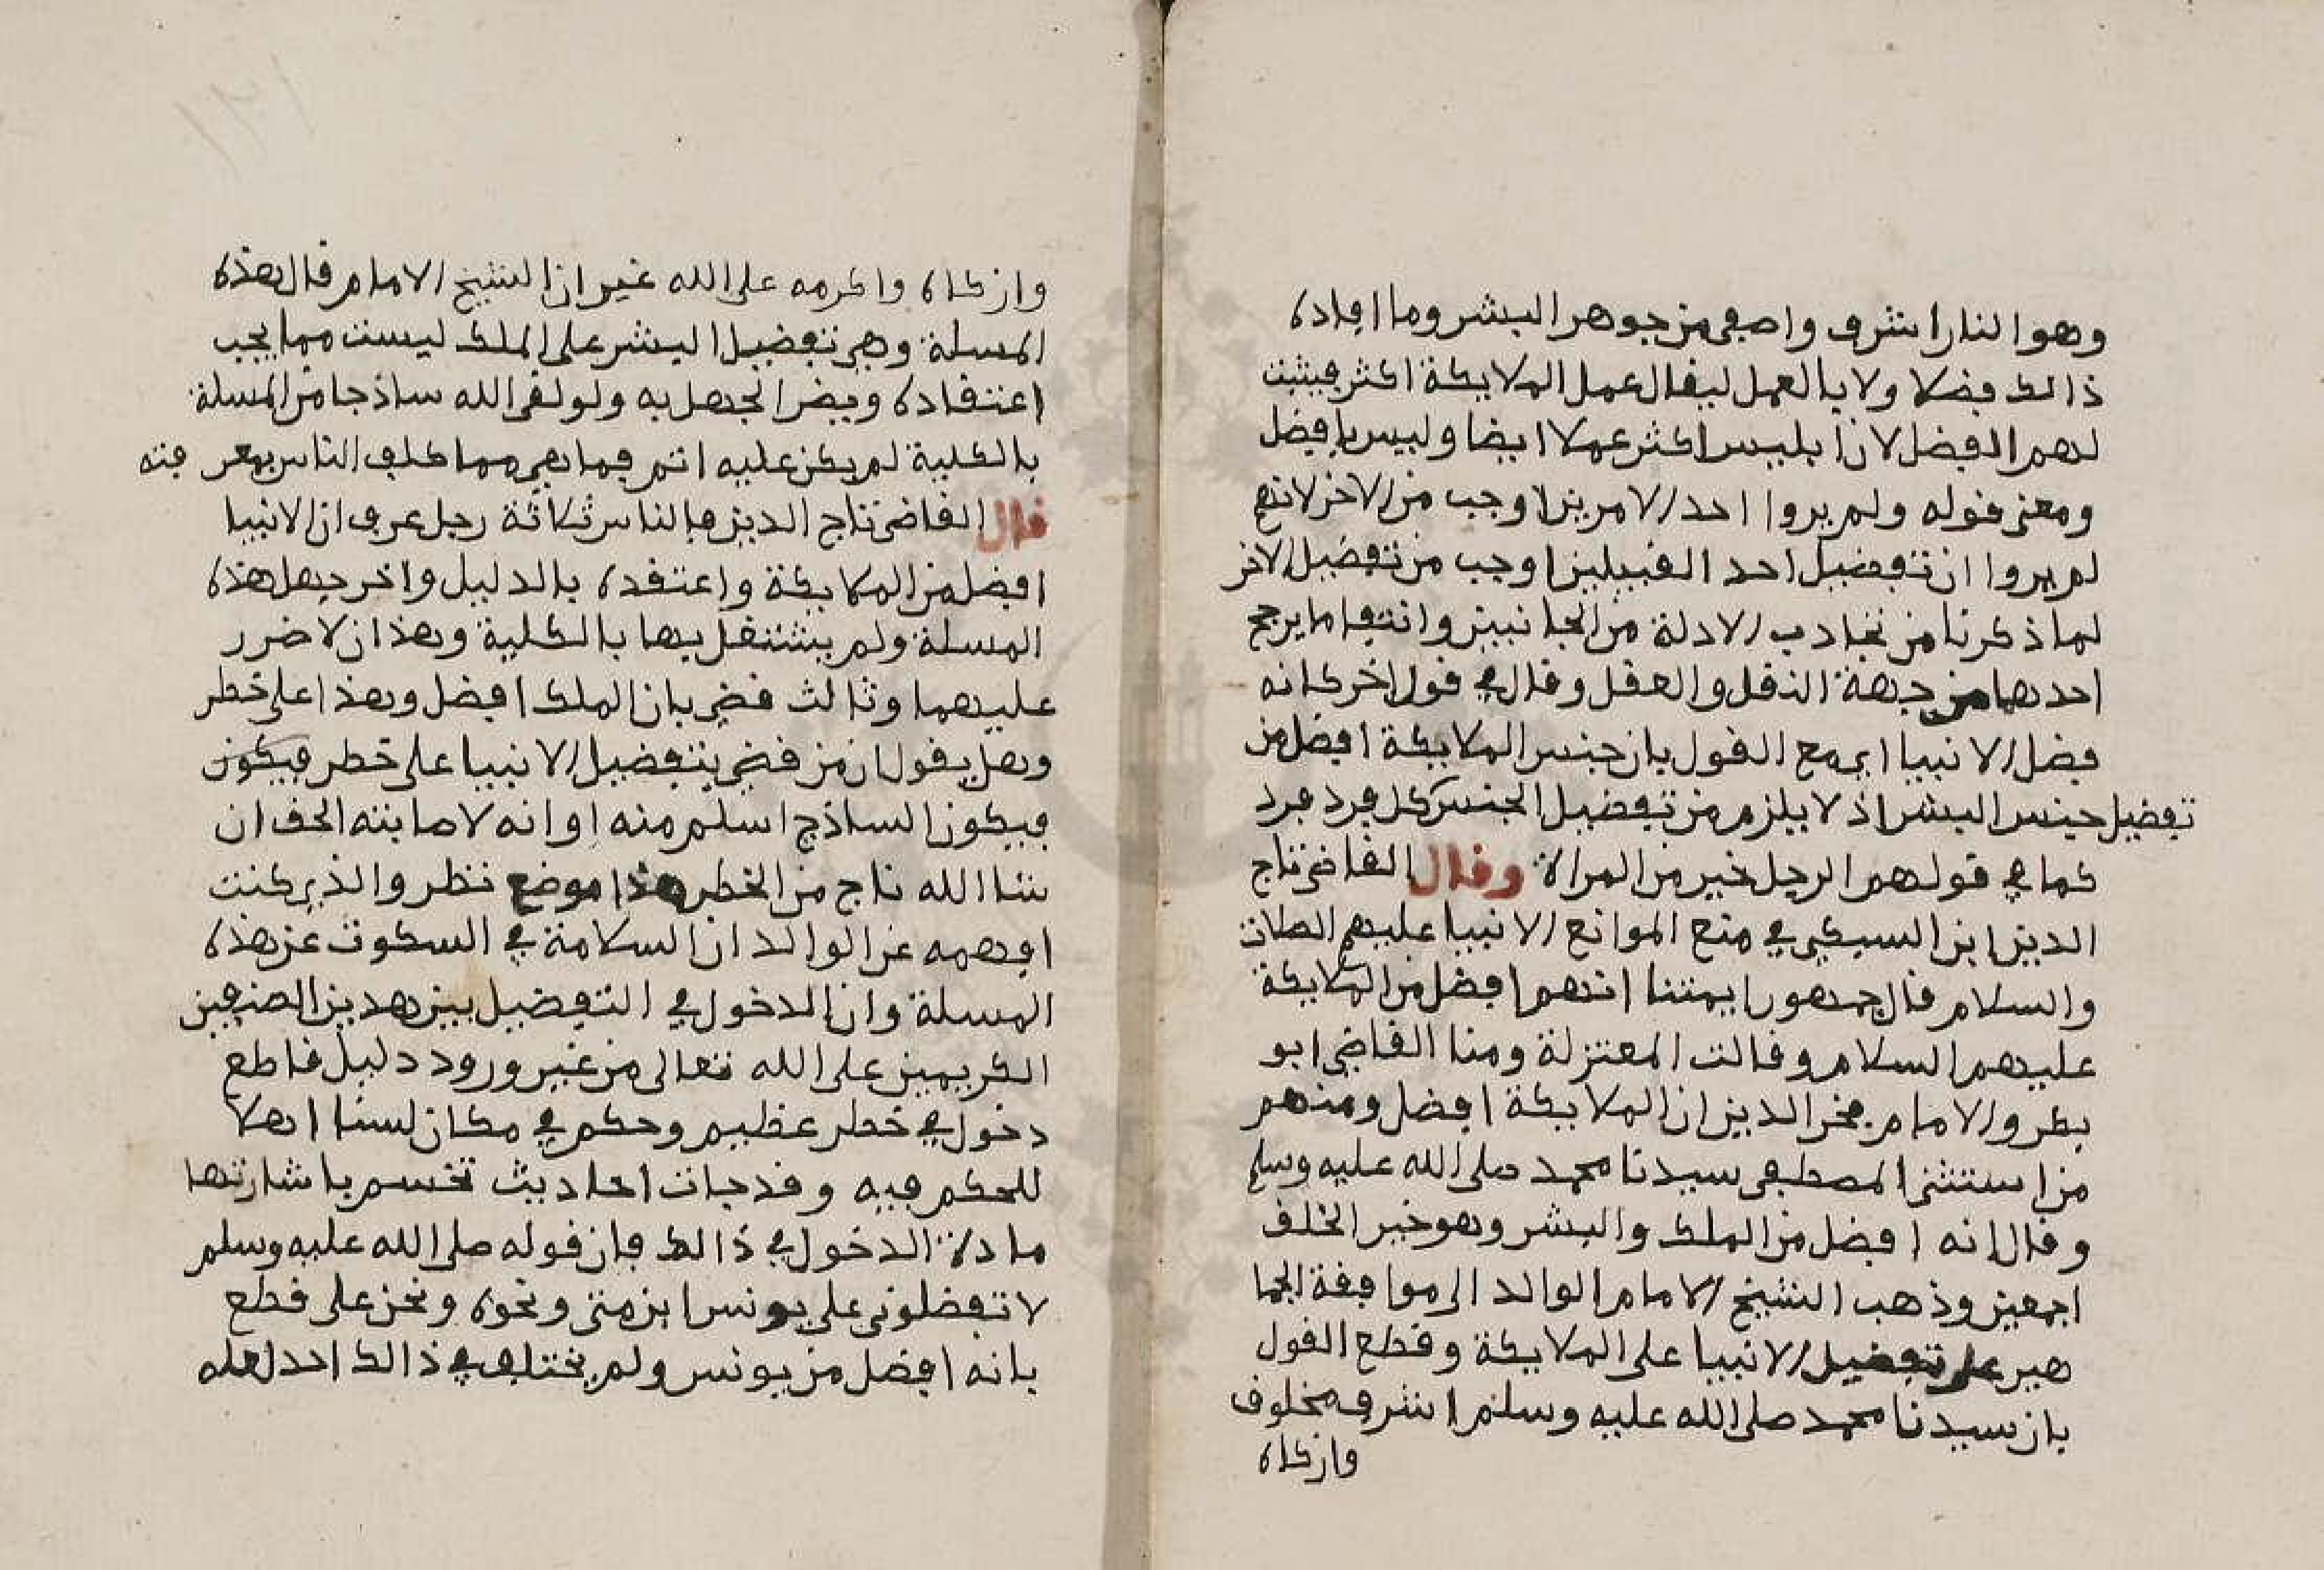 وهو النار اشرف واصفى من جوهر البشر وما افاده
ذالك فضلا ولا بالعمل ليقال عمل الملايكة اكثر فيثبت
لهم الفضل لان ابليس اكثر عملا ايضا وليس بافضل
ومعنى قوله ولم يروا احد الامرين اوجب من الاخر لانهم
لم يروا ان تفضيل احد القبيلين اوجب من تفضيل الاخر
لما ذكرنا من تجاذب الادلة من الجانبين وانتفا ما يرجح
احدهما من جهة النقل والعقل وقال في قول اخر كانه
فضل الانبيا اي مع القول بان جنس الملايكة افضل من
تفضيل جنس البشر اذ لا يلزم من تفضيل الجنس كل فرد فرد
كما في قولهم الرجل خير من المراة وقال القاضي تاج
الدين ابن السبكي في منع الموانع الانبيا عليهم الصلات
والسلام قال جمهور ايمتنا انهم افضل من الملايكة
عليهم السلام وقالت المعتزلة ومنا القاضي ابو
بكر والامام فخر الدين ان الملايكة افضل ومنهم
من استثنى المصطفى سيدنا محمد صلى الله عليه وسلم
وقال انه افضل من الملك والبشر وهو خير الخلف
اجمعين وذهب الشيخ الامام الوالد الى موافقة الجما
هير على تفضيل الانبيا على الملايكة وقطع القول
بان سيدنا محمد صلى الله عليه وسلم اشرف مخلوق
وازكاه
وازكاه واكرمه على الله غير ان الشيخ الامام قال هذه
المسلة وهي تفضيل البشر على الملك ليست مما يجب
اعتقاده ويضر الجهل به ولو لقى الله ساذجا من المسلة
بالكلية لم يكن عليه اثم فما هي مما كلف الناس بمعر فته
قال القاضي تاج الدين فالناس ثلاثة رجل عرف ان الانبيا
افضل من الملايكة واعتقده بالدليل واخر جهل هذه
المسلة ولم يشتغل بها بالكلية وهذان لا ضرر
عليهما وثالث قضى بان الملك افضل وهذا على خطر
وهل يقول ان من قضى بتفضيل الانبيا على خطر فيكون
فيكون الساذج اسلم منه او انه لاصابته الحق ان
شا الله ناج من الخطر هذا موضع نظر والذي كنت
افهمه عن الوالد ان السلامة في السكوت عن هذه
المسلة وان الدخول في التفضيل بين هدين الصنفين
الكريمين على الله تعالى من غير ورود دليل قاطع
دخول في خطر عظيم وحكم في مكان لسنا اهلا
للحكم فيه وقد جات احاديث تحسم باشارتها
مادة الدخول في ذالك فان قوله صلى الله عليه وسلم
لا تفضلوني على يونس ابن متى ونحوه ونحن على قطع
بانه افضل من يونس ولم يختلف في ذالك احد لعله